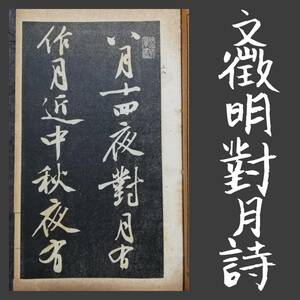 文徵明對月詩
八月十四夜對月有
作月近中秋夜有